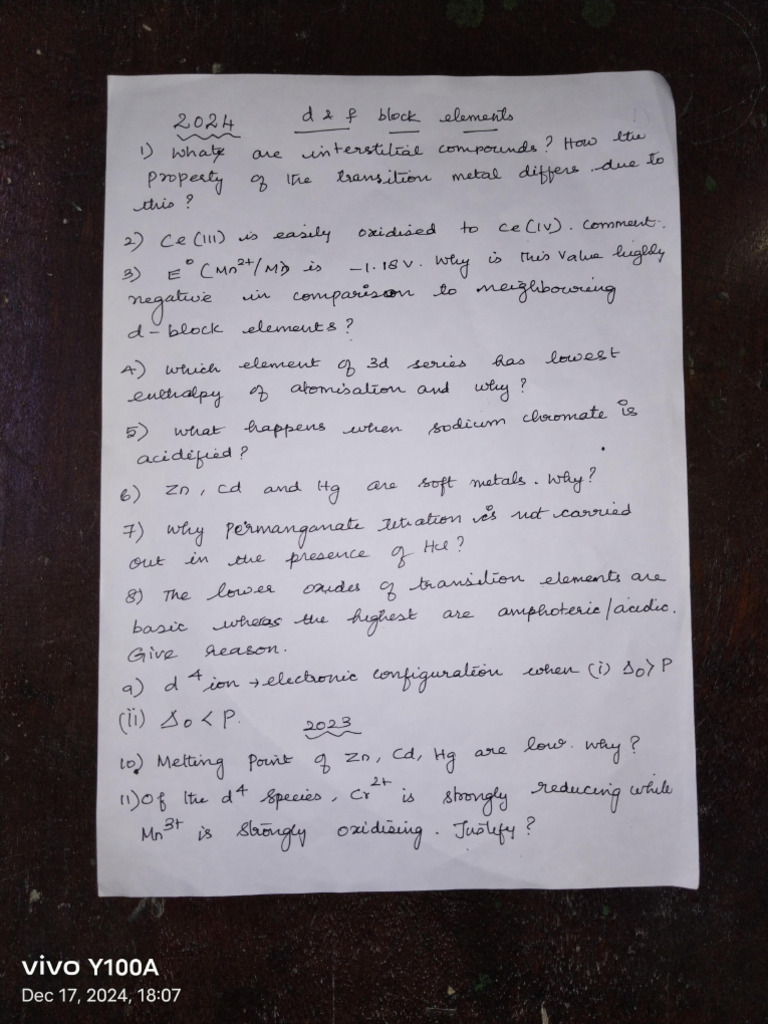 2024 d & f block elements
1) What are interstitial compounds? How the
property of the transition metal differs due to
this?
2) Ce (III) is easily oxidised to Ce (IV). Comment.
3) E° (Mn²⁺/Mn) is -1.18V. Why is this value highly
negative in comparison to neighbouring
d-block elements?
4) Which element of 3d series has lowest
enthalpy of atomisation and why?
5) What happens when sodium chromate is
acidified?
6) Zn, Cd and Hg are soft metals. Why?
7) Why Permanganate titration is not carried
out in the presence of Hcl?
8) The lower oxides of transition elements are
basic wheras the highest are amphoteric/acidic.
Give reason.
9) d⁴ ion → electronic configuration when (i) Δo > P
(ii) Δo < P.
2023
10) Melting Point of Zn, Cd, Hg are low. Why?
11) Of the d⁴ species, Cr²⁺ is strongly reducing while
Mn³⁺ is strongly oxidising. Justify?
vivo Y100A
Dec 17, 2024, 18:07